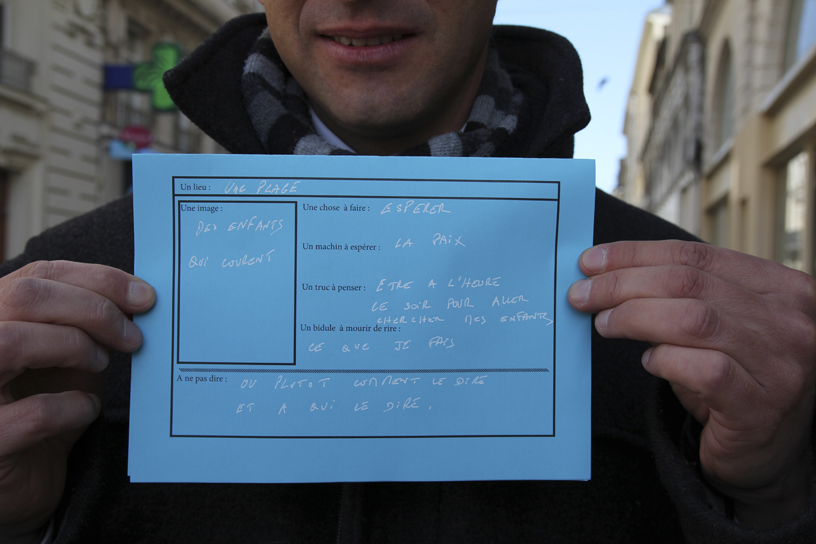 Un lieu : UNE PLAGE
Une image :
DES ENFANTS
QUI COURENT
Une chose à faire : ESPERER
Un machin à espérer : LA PAIX
Un truc à penser : ETRE A L'HEURE
LE SOIR POUR ALLER
CHERCHER MES ENFANTS
Un bidule à mourir de rire :
CE QUE JE FAIS
A ne pas dire : OU PLUTOT COMMENT LE DIRE
ET A QUI LE DIRE.